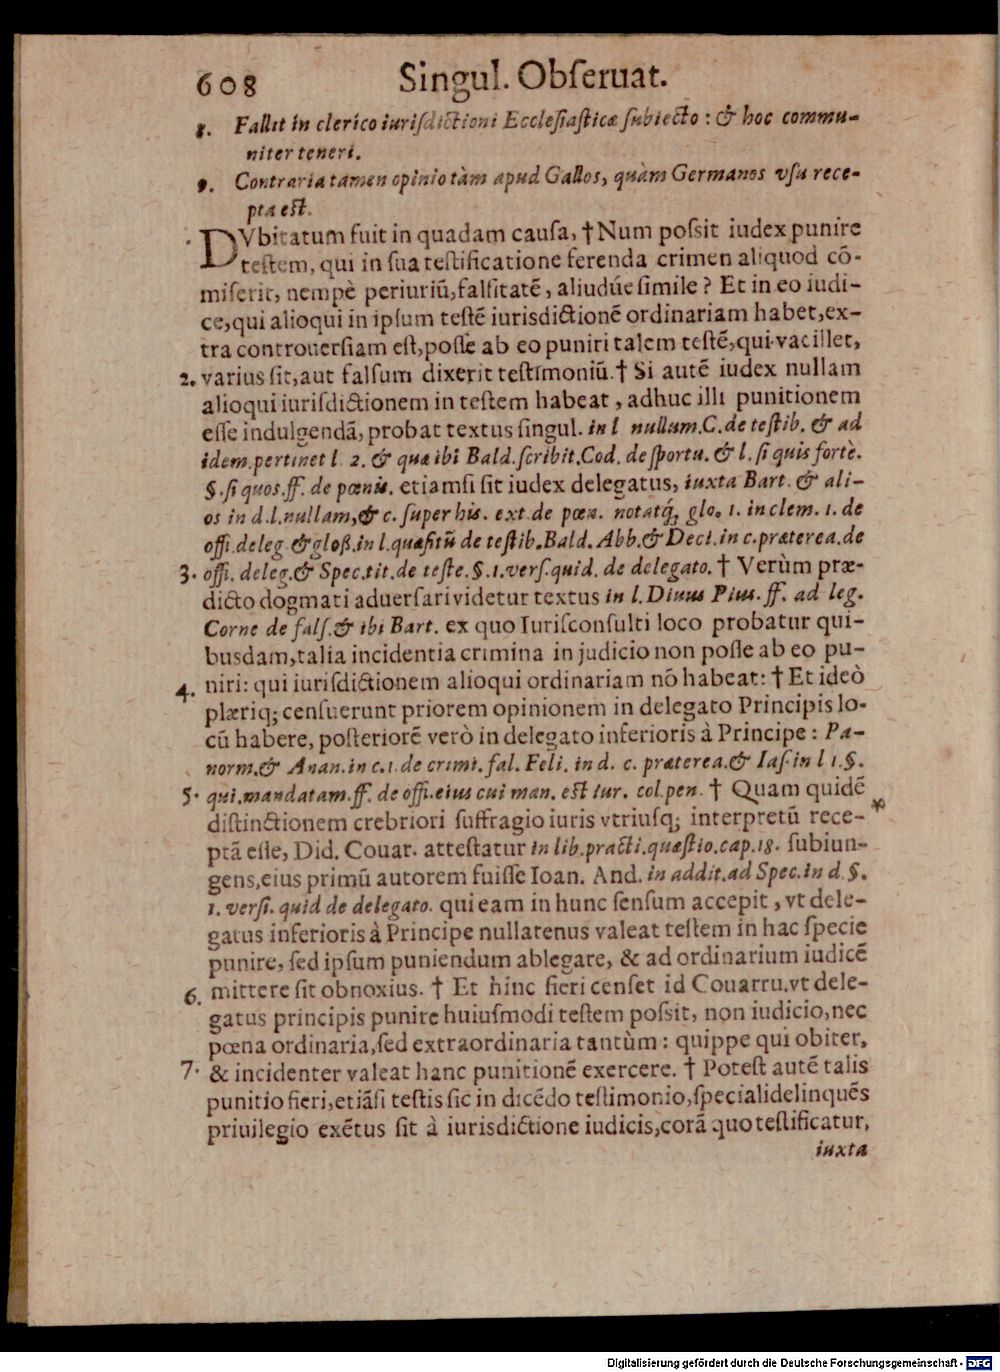 608 Singul. Obſeruat.
8. Fallit in clerico iuriſdictioni Eccleſiaſticæ ſubiecto : & hoc commu-
niter teneri.
9. Contraria tamen opinio tàm apud Gallos, quàm Germanos vſu rece-
pta eſt.
DVbitatum fuit in quadam cauſa, † Num poſsit iudex punire
teſtem, qui in ſua teſtificatione ferenda crimen aliquod cō-
miſerit, nempè periuriū, falſitatē, aliudúe ſimile ? Et in eo iudi-
ce, qui alioqui in ipſum teſtē iurisdictionē ordinariam habet, ex-
tra controuerſiam eſt, poſſe ab eo puniri talem teſtē, qui vacillet,
2. varius ſit, aut falſum dixerit teſtimoniū. † Si autē iudex nullam
alioqui iuriſdictionem in teſtem habeat , adhuc illi punitionem
eſſe indulgendā, probat textus ſingul. in l nullum. C. de teſtib. & ad
idem. pertinet l 2. & quæ ibi Bald. ſcribit. Cod. de ſportu. & l. ſi quis fortè.
§. ſi quos. ff. de pœnis. etiamſi ſit iudex delegatus, iuxta Bart. & ali-
os in d. l. nullam, & c. ſuper his. ext. de pœn. notatq́; glo. 1. in clem. 1. de
offi. deleg. & gloß. in l. quæſitū de teſtib. Bald. Abb. & Deci. in c. præterea. de
3. offi. deleg. & Spec. tit. de teſte. §. 1. verſ. quid. de delegato. † Verùm præ-
dicto dogmati aduerſari videtur textus in l. Diuus Pius. ff. ad leg.
Corne de falſ. & ibi Bart. ex quo Iurisconſulti loco probatur qui-
busdam, talia incidentia crimina in judicio non poſſe ab eo pu-
niri: qui iuriſdictionem alioqui ordinariam nō habeat: † Et ideò
4. plæriq; cenſuerunt priorem opinionem in delegato Principis lo-
cū habere, poſteriorē verò in delegato inferioris à Principe : Pa-
norm. & Anan. in c. 1. de crimi. fal. Feli. in d. c. præterea. & Iaſ. in l 1. §.
5. qui. mandatam. ff. de offi. eius cui man. eſt iur. col. pen. † Quam quidē
diſtinctionem crebriori ſuffragio iuris vtriuſq; interpretū rece-
ptā eſſe, Did. Couar. atteſtatur in lib. practi. quæſtio. cap. 18. ſubiun-
gens, eius primū autorem fuiſſe Ioan. And. in addit. ad Spec. in d. §.
1. verſi. quid de delegato. qui eam in hunc ſenſum accepit , vt dele-
gatus inferioris à Principe nullatenus valeat teſtem in hac ſpecie
punire, ſed ipſum puniendum ablegare, & ad ordinarium iudicē
6. mittere ſit obnoxius. † Et hinc fieri cenſet id Couarru. vt dele-
gatus principis punire huiuſmodi teſtem poſsit, non iudicio, nec
pœna ordinaria, ſed extraordinaria tantùm : quippe qui obiter,
7. & incidenter valeat hanc punitionē exercere. † Poteſt autē talis
punitio fieri, etiāſi teſtis ſic in dicēdo teſtimonio, ſpecialidelinquēs
priuilegio exētus ſit à iurisdictione iudicis, corā quo teſtificatur,
iuxta
Digitalisierung gefördert durch die Deutsche Forschungsgemeinschaft - DFG